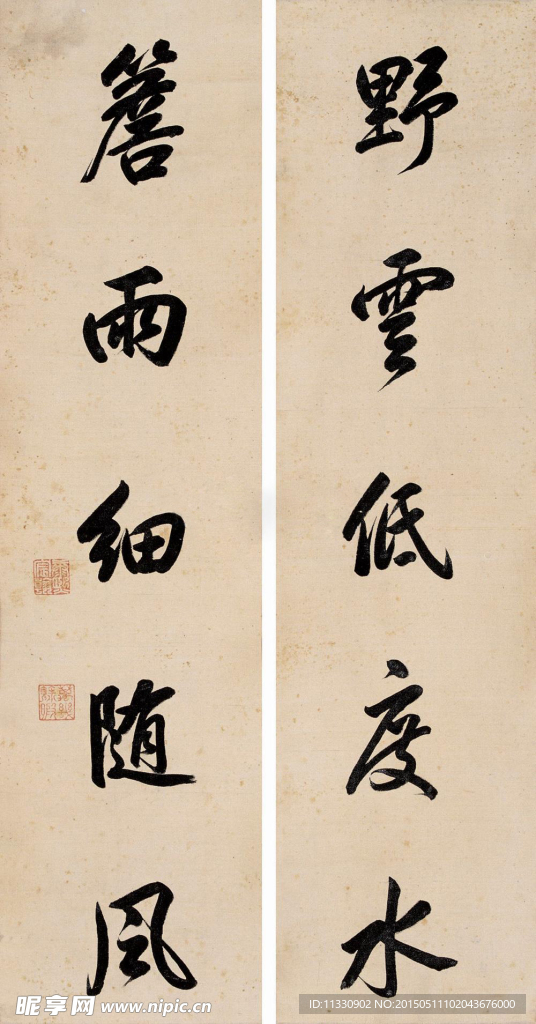 野雲低度水
簷雨細随風
昵享网 www.nipic.cn
ID:11330902 NO:20150511102043676000